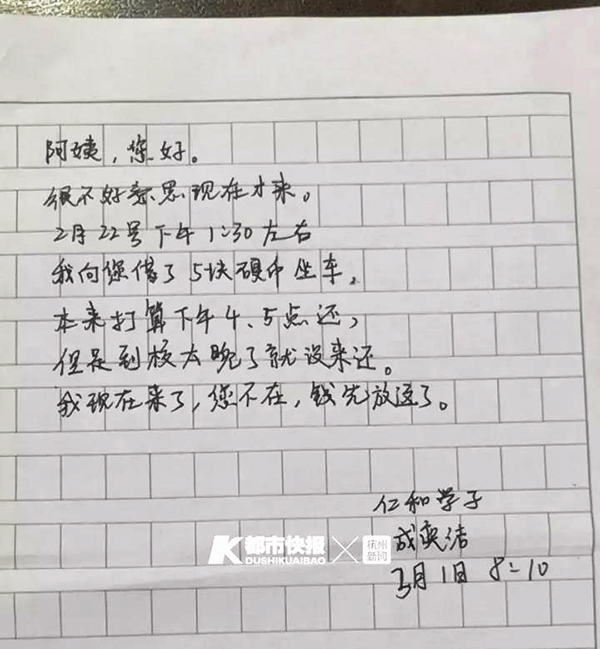 阿姨,您好。
很不好意思现在才来。
2月22号下午1:30左右
我向您借了5块硬币坐车,
本来打算下午4、5点还,
但是到校太晚了就没来还。
我现在来了,您不在,钱先放这了。
仁和学子
成奕洁
3月1日 8:10
都市快报
DUSHIKUAIBAO
杭州
新闻